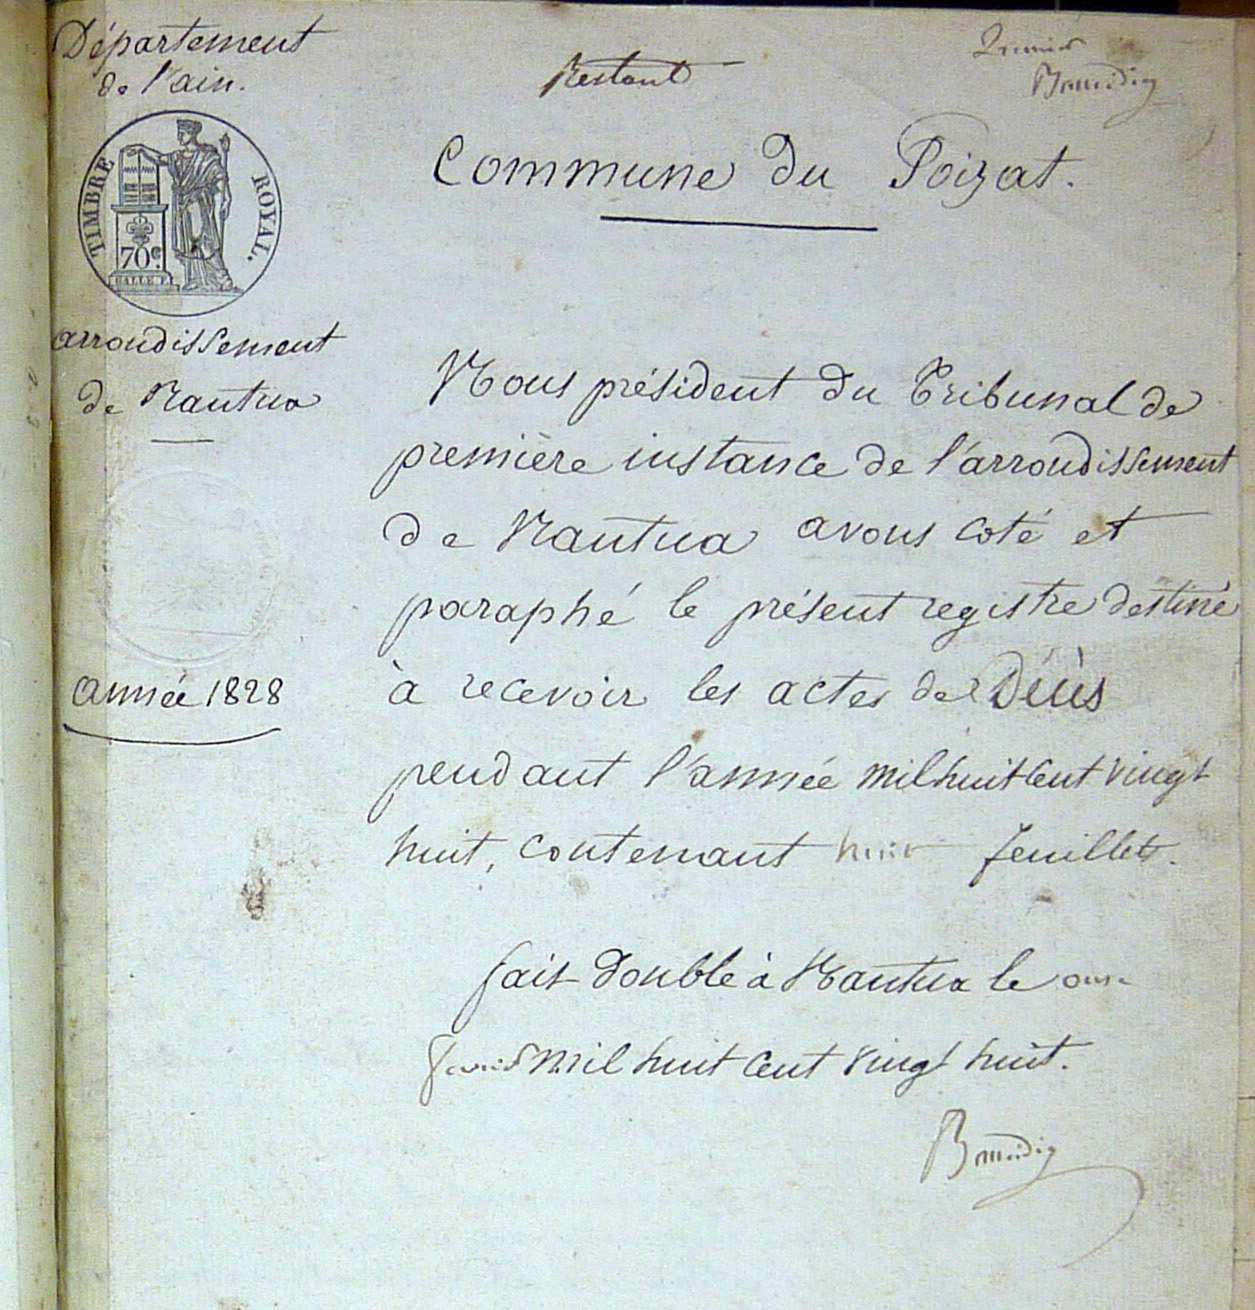 Département
de l'ain.
Restant
Premier
TIMBRE ROYAL.
70c.
Commune du Poizat.
arrondissement
de Nantua
Nous président du Tribunal de
première instance de l'arrondissement
de Nantua avons coté et
paraphé le présent registre destiné
à recevoir les actes de Décès
année 1828
pendant l'année mil huit Cent vingt
huit, contenant huit feuillets.
fait double à Nantua le onze
Janvier mil huit Cent vingt huit.